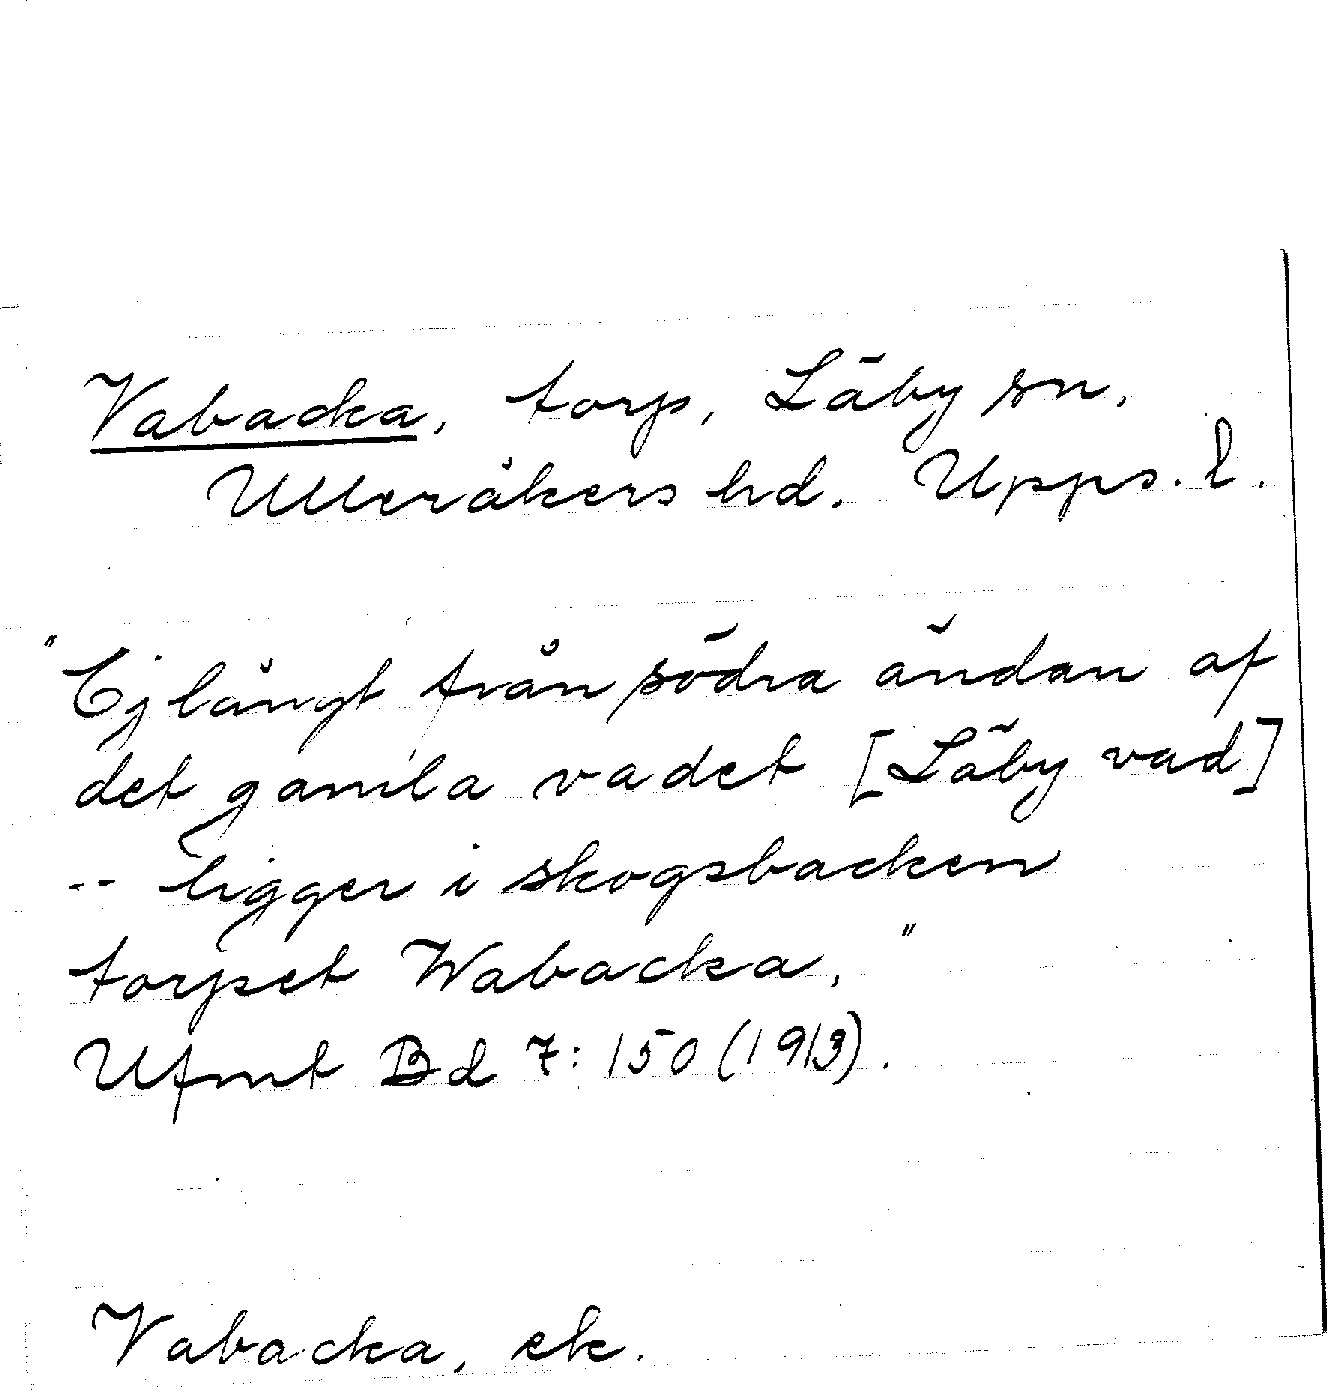 Vabacka, torp, Läby sn,
Ulleråkers hd. Upps. l.
"Ej långt från södra ändan af
det gamla vadet [Läby vad]
-- ligger i skogsbacken
torpet Wabacka,"
Ufmt Bd 7: 150 (1913).
Vabacka, ek.